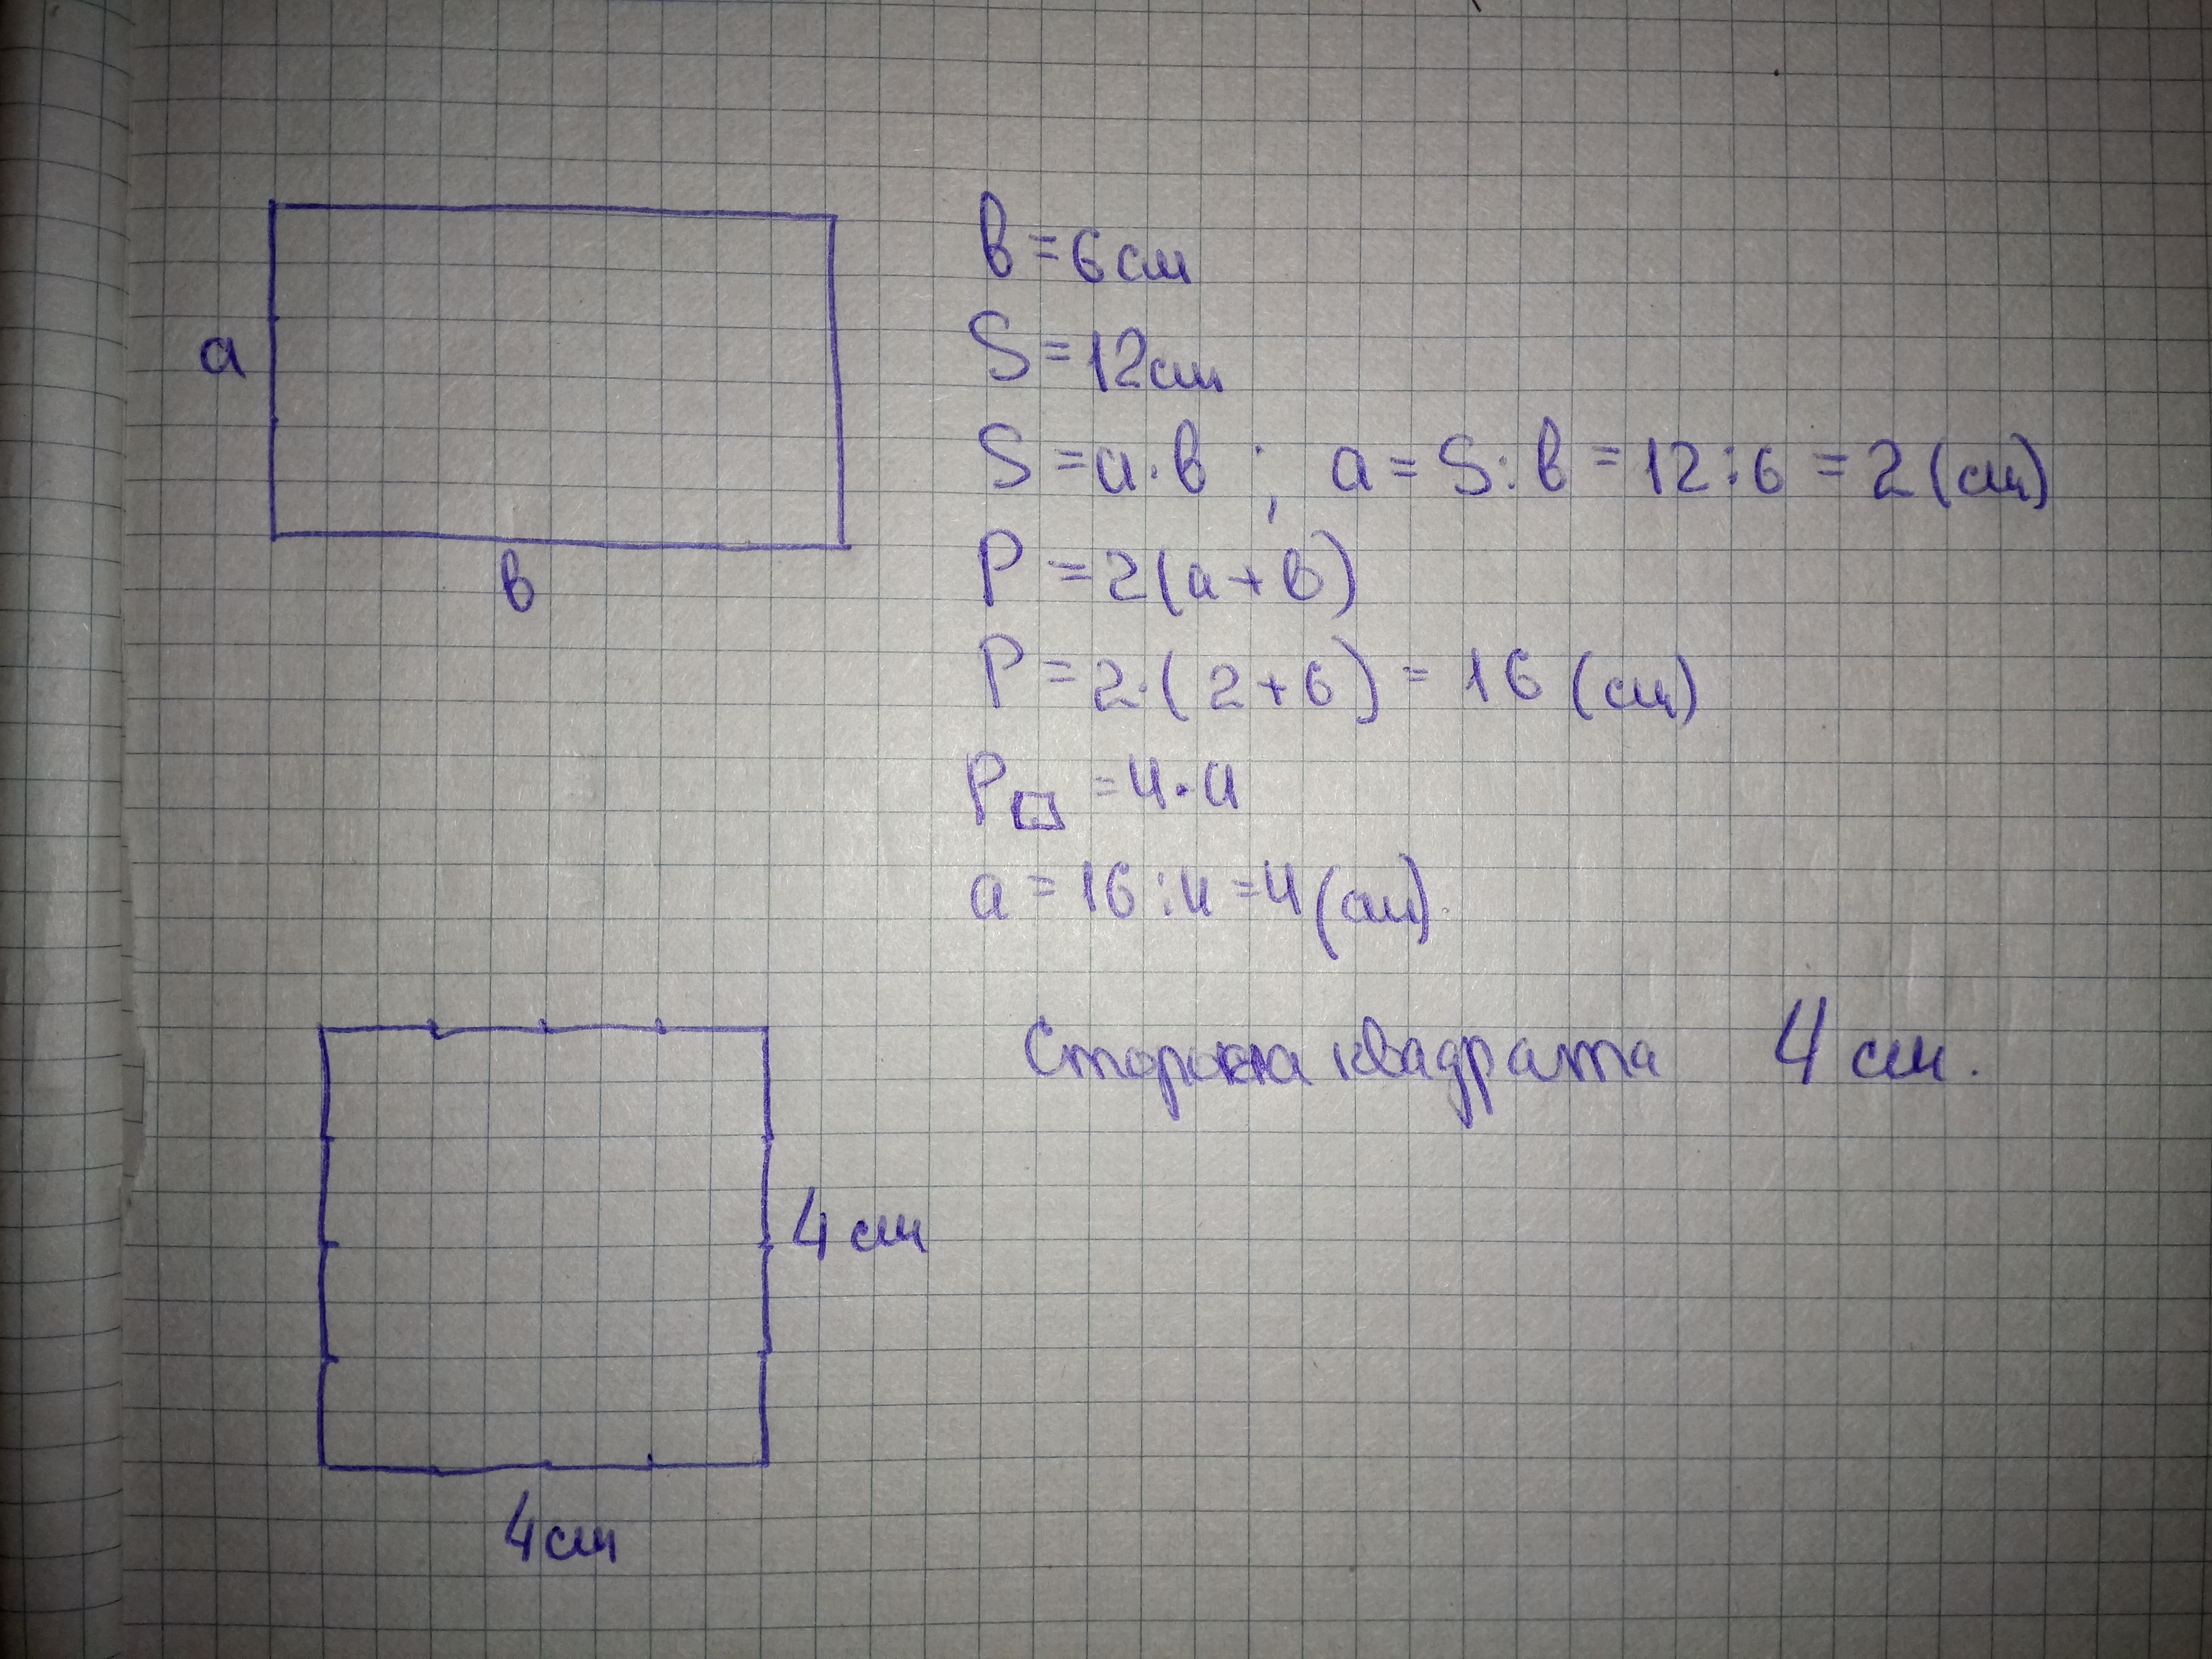 a
в
в = 6 см
S = 12 см
S = a · в ; a = S : в = 12 : 6 = 2 (см)
P = 2(a + в)
P = 2·(2+6) = 16 (см)
P□ = 4 · a
a = 16 : 4 = 4 (см).
Сторона квадрата 4 см.
4 см
4 см